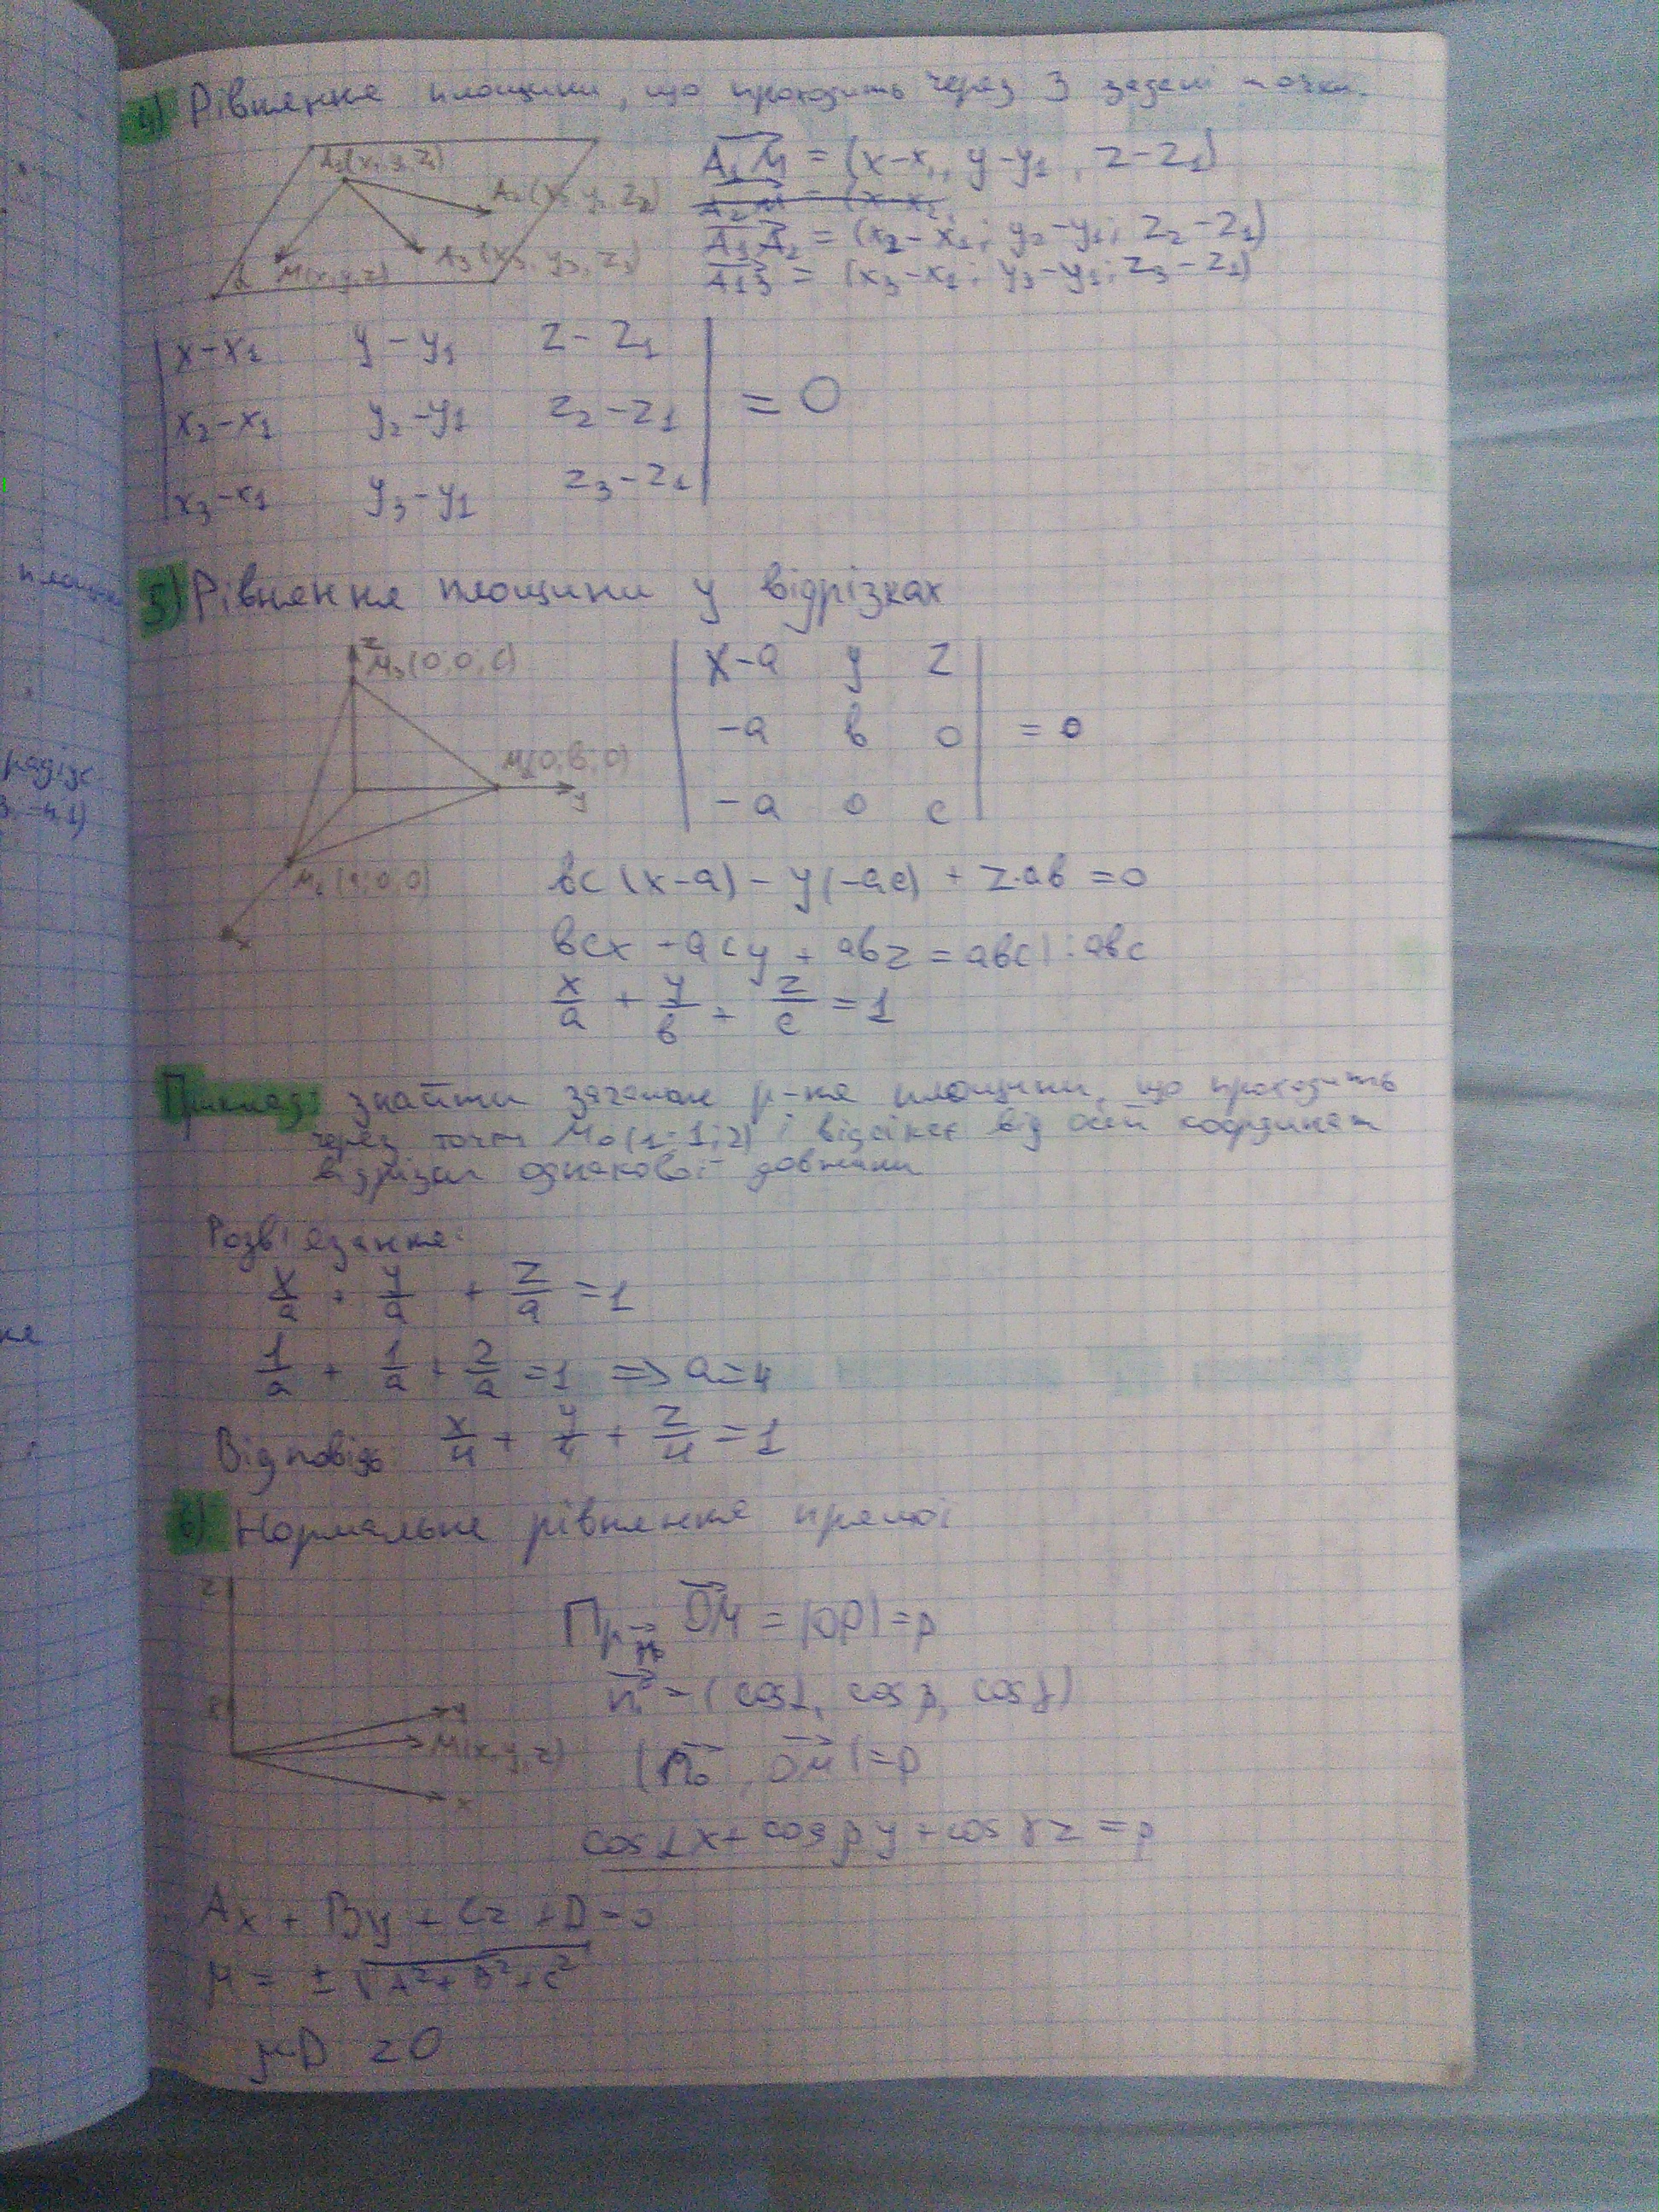 4) Рівняння площини, що проходить через 3 задані точки.
A₁(x₁, y₁, z₁)
A₂(x₂, y₂, z₂)
A₃(x₃, y₃, z₃)
M(x, y, z)
A₁M = (x-x₁, y-y₁, z-z₁)
A₁A₂ = (x₂-x₁; y₂-y₁; z₂-z₁)
A₁₃ = (x₃-x₁; y₃-y₁; z₃-z₁)
| x-x₁ y-y₁ z-z₁ |
| x₂-x₁ y₂-y₁ z₂-z₁ | = 0
| x₃-x₁ y₃-y₁ z₃-z₁ |
5) Рівняння площини у відрізках
z
M₃(0; 0; c)
M₂(0; в; 0)
y
M₁(a; 0; 0)
x
| x-a y z |
| -a в 0 | = 0
| -a 0 c |
вc(x-a) - y(-ac) + z·aв = 0
вcx + acy + aвz = aвc | : aвc
x/a + y/в + z/c = 1
Приклад: знайти загальне р-ня площини, що проходить
через точку M₀(1; 1; 2) і відсікає від осей координат
відрізки однакової довжини
Розв'язання:
x/a + y/a + z/a = 1
1/a + 1/a + 2/a = 1 => a=4
Відповідь: x/4 + y/4 + z/4 = 1
6) Нормальне рівняння прямої
z
y
M(x, y, z)
x
Пр n₀ OM = |OP| = p
n₀ = (cos α, cos β, cos γ)
(n₀, OM) = p
cos α x + cos β y + cos γ z = p
Ax + By + Cz + D = 0
M = ± √A²+B²+C²